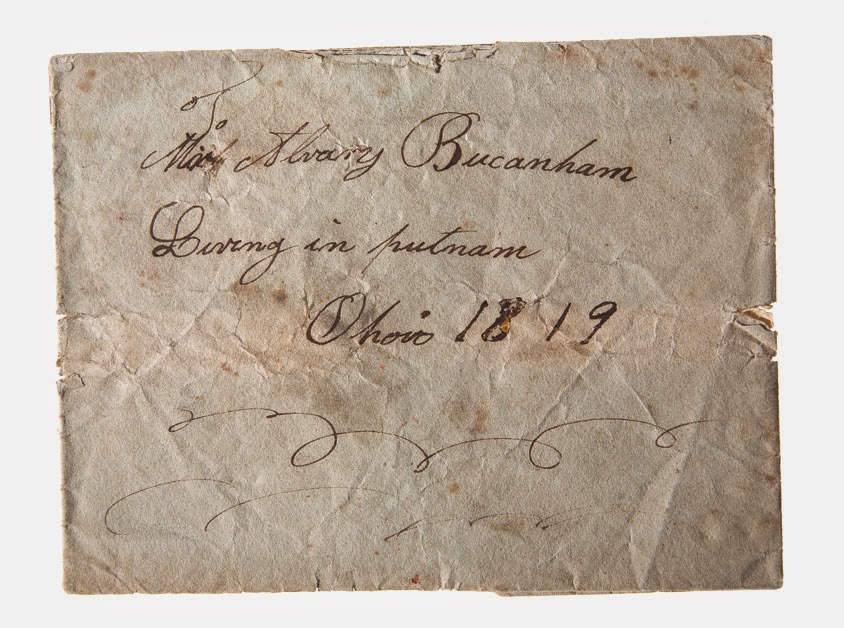 of
Miss Alvary Bucanham
Living in putnam
Ohoio 1819